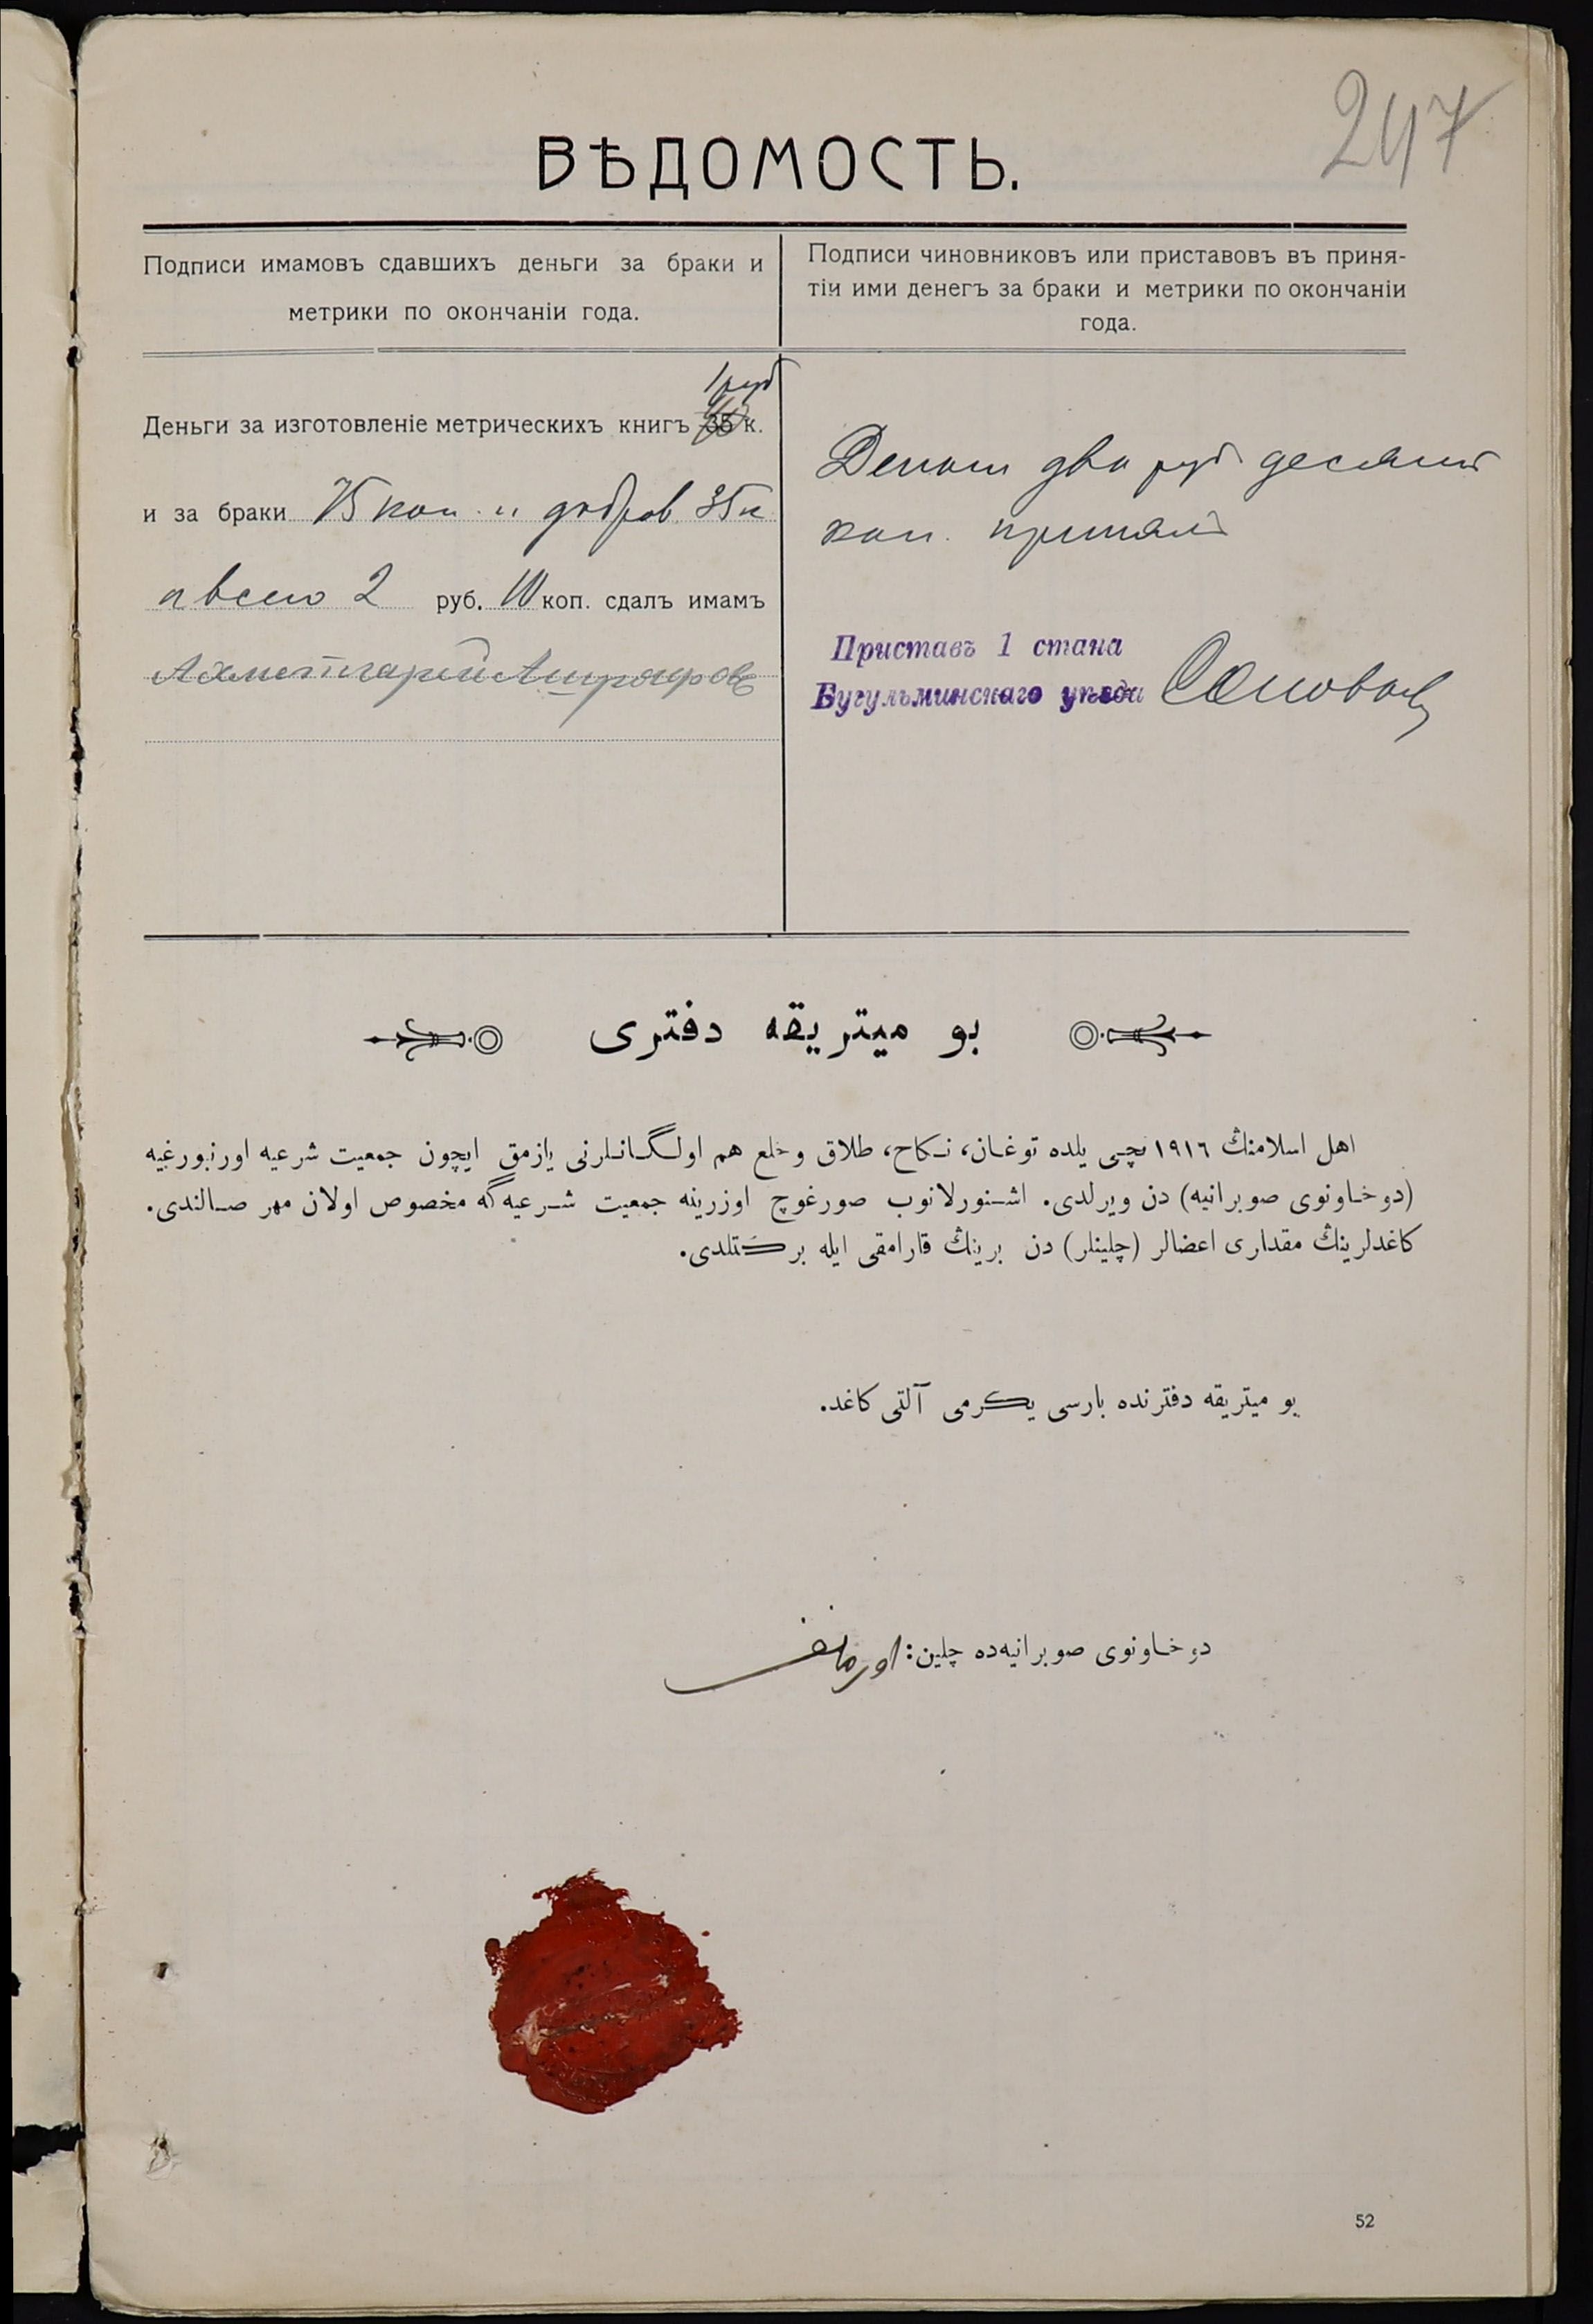 247
ВѢДОМОСТЬ.
Подписи имамовъ сдавшихъ деньги за браки и
метрики по окончаніи года.
Подписи чиновниковъ или приставовъ въ приня-
тіи ими денегъ за браки и метрики по окончаніи
года.
1 руб
Деньги за изготовленіе метрическихъ книгъ 35 к.
и за браки 75 коп. и добров. 35 к
а всего 2 руб. 10 коп. сдалъ имамъ
Ахметгарей
Деньги два руб десять
коп. принялъ
Приставъ 1 стана
Бугульминскаго уѣзда
بو ميتريقه دفترى
اهل اسلامنڭ ١٩١٦ نچى يلده توغان، نكاح، طلاق و خلع هم اولگانلرنى يازمق ايچون جمعيت شرعيه اورنبورغيه
(دوخاونوى صوبرانيه) دن ويرلدى. اشنورلانوب صورغوچ اوزرينه جمعيت شرعيه‌گه مخصوص اولان مهر صالندى.
كاغدلرينڭ مقدارى اعضالر (چلينلر) دن برينڭ قارامقى ايله بركتلدى.
بو ميتريقه دفترنده بارسى يكرمى آلتى كاغد.
دوخاونوى صوبرانيه‌ده چلين:
52